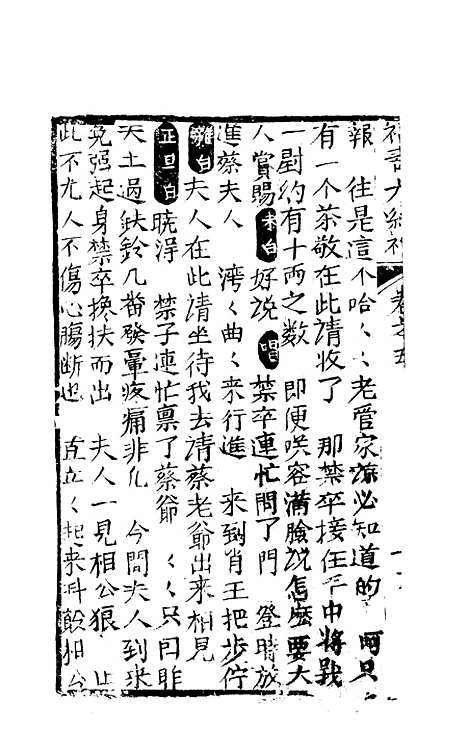 卷之五
報 往是這个哈〻〻老管家諒必知道的 阿只
有一个茶敬在此請收了 那禁卒接在手中將戥
一戥約有十两之数 即便咲容滿臉説怎麽要大
人賞賜 末白 好説 唱 禁卒連忙開了門 登時放
進蔡夫人 湾〻曲〻来行進 来到肖王把步佇
雜白 夫人在此請坐待我去請蔡老爺出来相見
正旦白 曉淂 禁子連忙禀了蔡爺 〻〻只因昨
天土過鉄鈴几畨發暈疼痛非凡 今聞夫人到来
免强起身禁卒攙扶而出 夫人一見相公狼
此不尤人不傷心腸断也 直立〻起来科